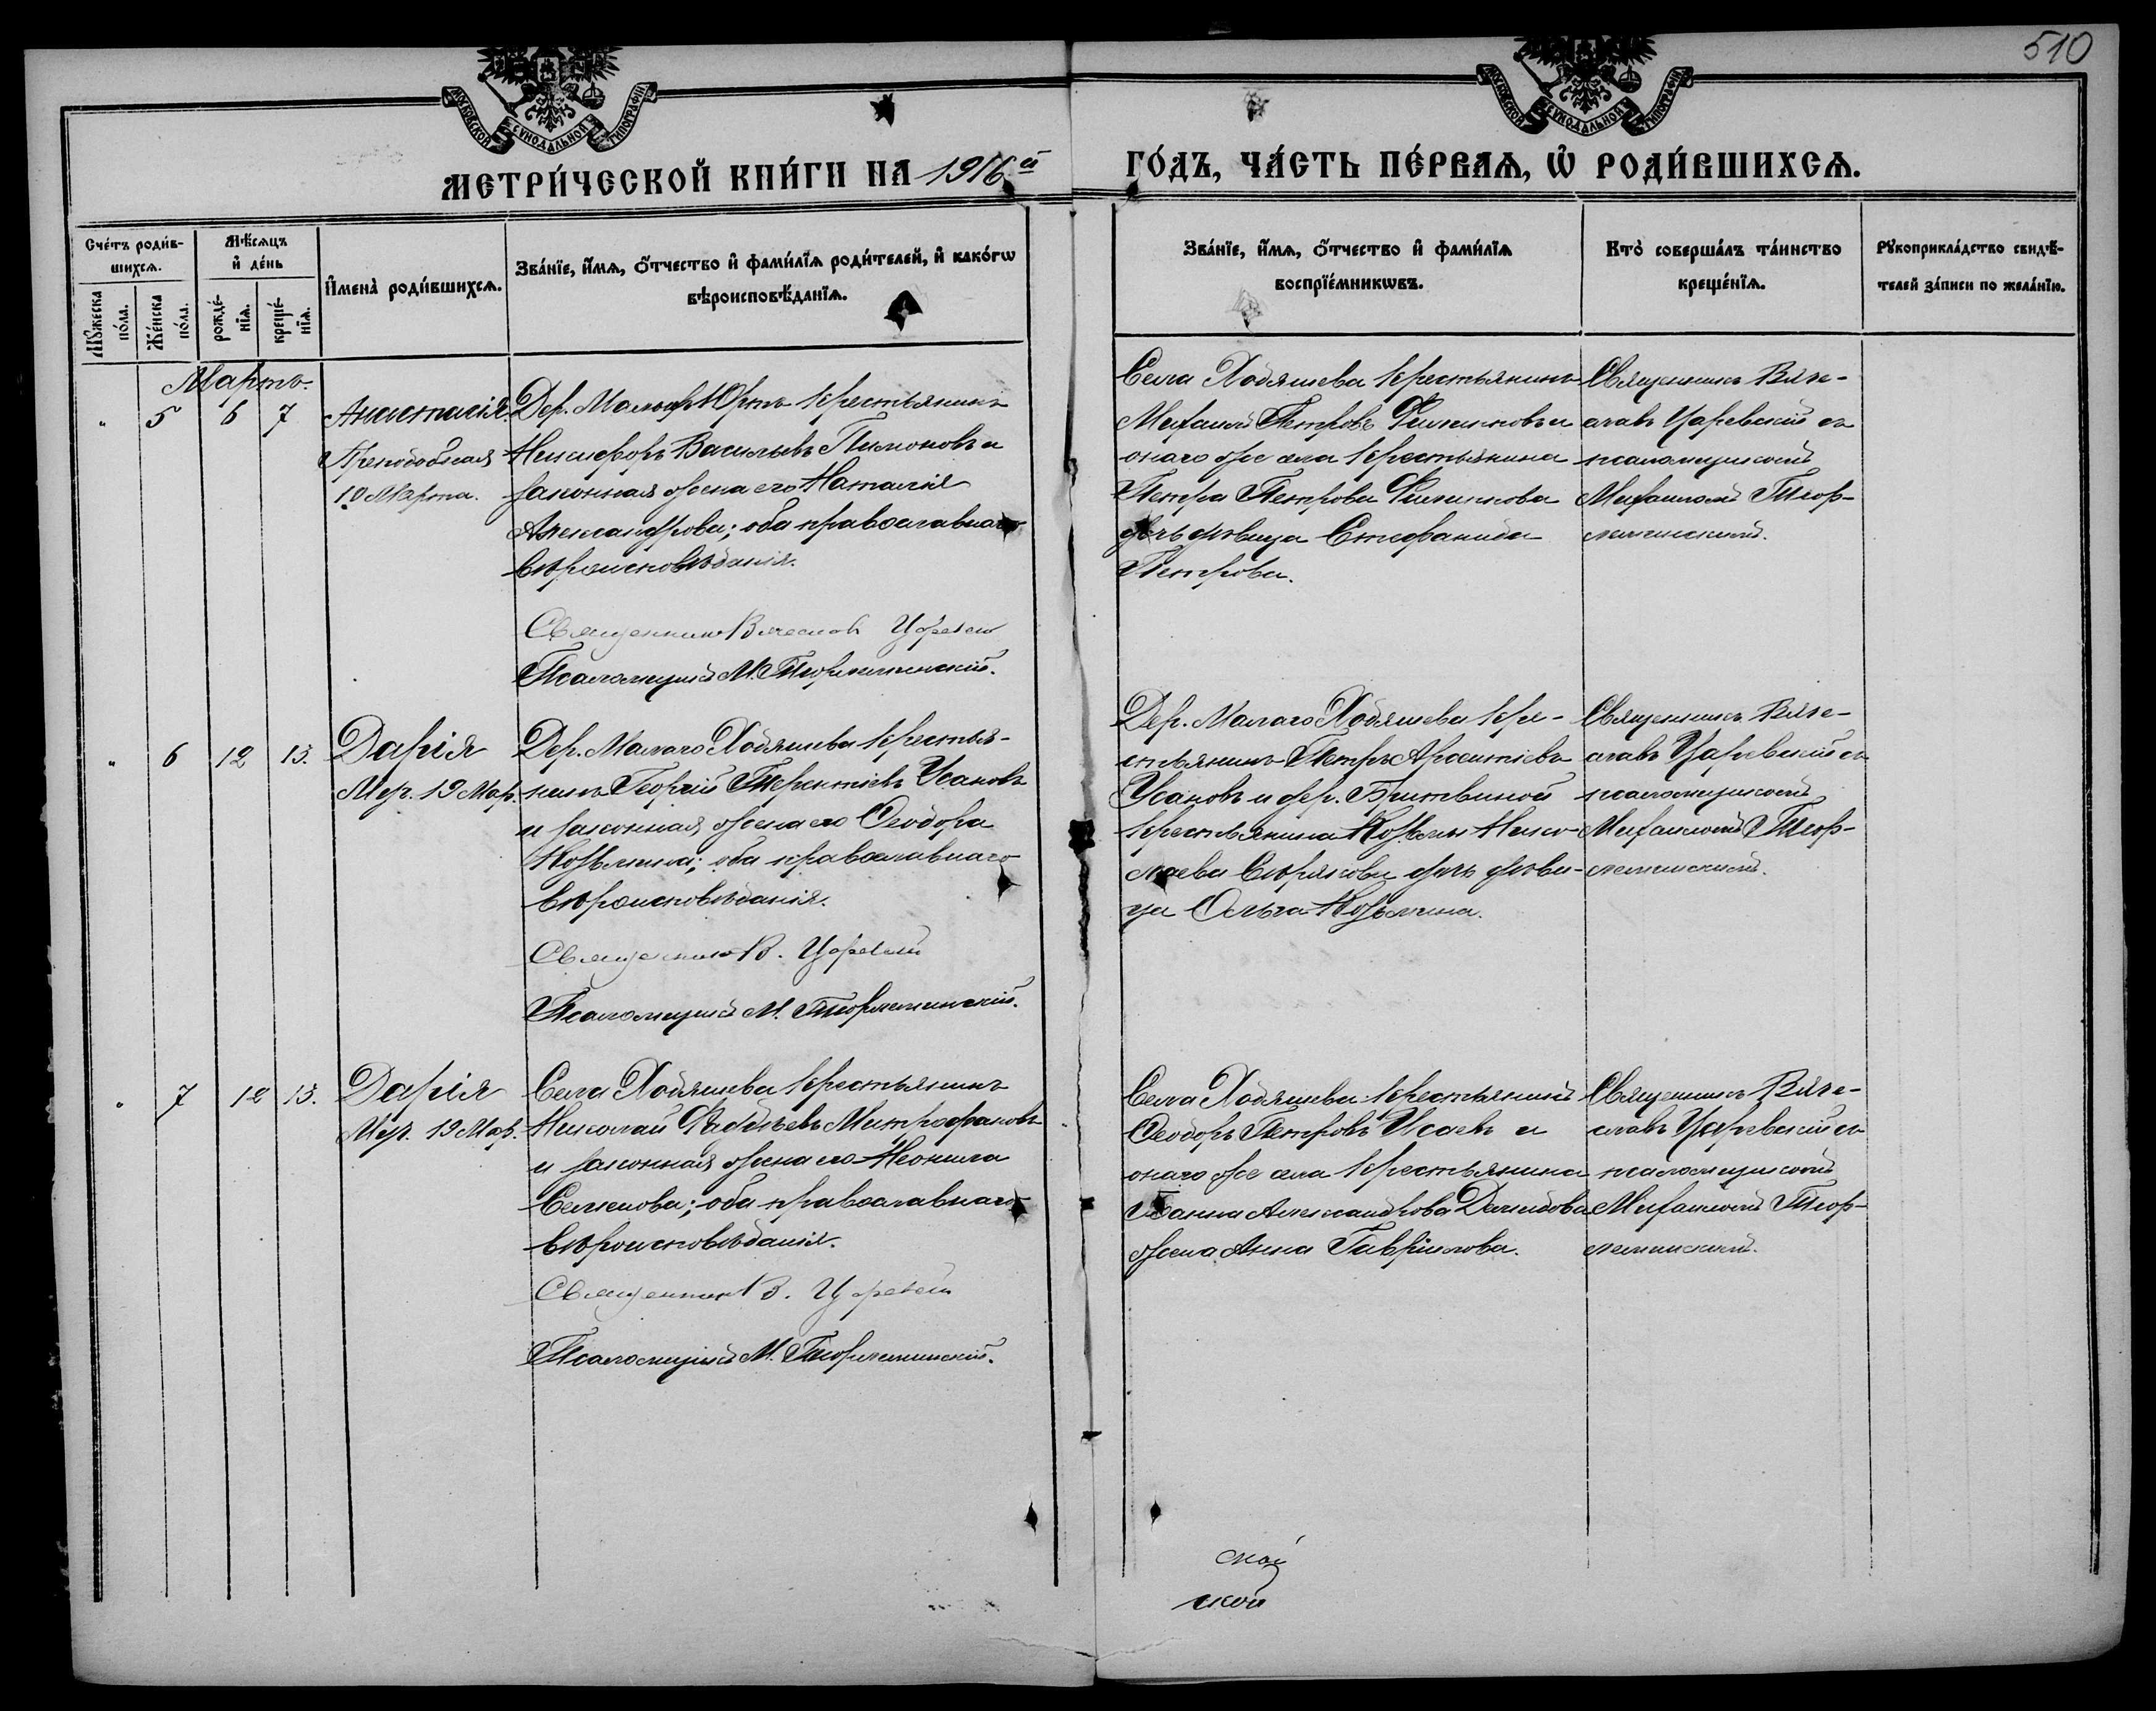 510
МОСКОВСКОЙ СѴНОДАЛЬНОЙ ТИПОГРАФІИ
МОСКОВСКОЙ СѴНОДАЛЬНОЙ ТИПОГРАФІИ
МЕТРИ́ЧЕСКОЙ КНИ́ГИ НА 1916й
ГО́ДЪ, ЧА́СТЬ ПЕ́РВАѦ, Ѡ҆ РОДИ́ВШИХСѦ.
Сче́тъ роди́в-
шихсѧ.
Мꙋ́жеска по́ла.
Же́нска по́ла.
Мѣ́сѧцъ
и҆ де́нь
рожде́-
нїѧ.
креще́-
нїѧ.
И҆мена̀ роди́вшихсѧ.
Зва́нїе, и҆́мѧ, ѻ҆́тчество и҆ фами́лїѧ роди́телей, и҆ како́гѡ
вѣроисповѣ́данїѧ.
Зва́нїе, и҆́мѧ, ѻ҆́тчество и҆ фами́лїѧ
воспрїе́мникѡвъ.
Кто̀ соверша́лъ та́инство
креще́нїѧ.
Рꙋкоприкла́дство свидѣ́-
телей за́писи по жела́нїю.
Мартъ.
" 5 6 7
Анастасія
Преподобная
10 Марта.
Дер. Малыхъ Юртъ крестьянинъ
Никифоръ Васильевъ Пимоновъ и
законная жена его Наталія
Александрова; оба православнаго
вѣроисповѣданія.
Священникъ Вячеславъ Царевскій
Псаломщикъ М. Тюрлеминскій.
Села Ходяшева крестьянинъ
Михаилъ Петровъ Филипповъ и
онаго же села крестьянина
Петра Петрова Филиппова
дочь дѣвица Стефанида
Петрова.
Священникъ Вяче-
славъ Царевскій съ
псаломщикомъ
Михаиломъ Тюр-
леминскимъ.
" 6 12 13.
Дарія
Муч. 19 Мар.
Дер. Малаго Ходяшева крестья-
нинъ Георгій Терентіевъ Усановъ
и законная жена его Ѳеодора
Козьмина; оба православнаго
вѣроисповѣданія.
Священникъ В. Царевскій
Псаломщикъ М. Тюрлеминскій.
Дер. Малаго Ходяшева кре-
стьянинъ Петръ Арсентіевъ
Усановъ и дер. Бритвиной
крестьянина Козьмы Нико-
лаева Сѣрякова дочь дѣви-
ца Ольга Козьмина.
Священникъ Вяче-
славъ Царевскій съ
псаломщикомъ
Михаиломъ Тюр-
леминскимъ.
" 7 12 13.
Дарія
Муч. 19 Мар.
Села Ходяшева крестьянинъ
Николай Митрофановъ
и законная жена его Неонила
Семенова; оба православнаго
вѣроисповѣданія.
Священникъ В. Царевскій
Псаломщикъ М. Тюрлеминскій.
Села Ходяшева крестьянинъ
Ѳеодоръ Петровъ Исаевъ и
онаго же села крестьянина
Іоанна Александрова Демидова
жена Анна Гавріилова.
Священникъ Вяче-
славъ Царевскій съ
псаломщикомъ
Михаиломъ Тюр-
леминскимъ.
ской
ской